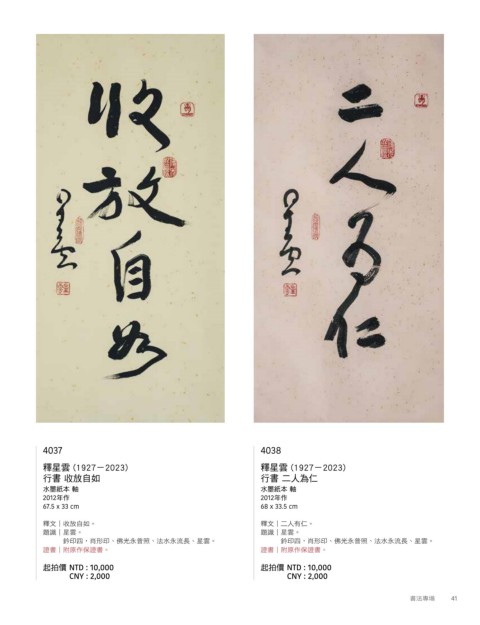 收放自如
星雲
二人為仁
星雲
4037
釋星雲（1927－2023）
行書 收放自如
水墨紙本 軸
2012年作
67.5 x 33 cm
釋文｜收放自如。
題識｜星雲。
鈐印四，肖形印、佛光永普照、法水永流長、星雲。
證書｜附原作保證書。
起拍價 NTD : 10,000
CNY : 2,000
4038
釋星雲（1927－2023）
行書 二人為仁
水墨紙本 軸
2012年作
68 x 33.5 cm
釋文｜二人有仁。
題識｜星雲。
鈐印四，肖形印、佛光永普照、法水永流長、星雲。
證書｜附原作保證書。
起拍價 NTD : 10,000
CNY : 2,000
書法專場 41